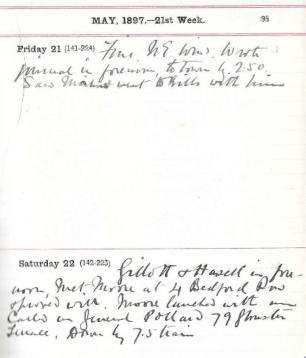 MAY, 1897.—21st Week. 95
Friday 21 (141-224) Fine. NE Wind. Wrote
journal in forenoon, to town by 2.50
Saw went to Hills with him
Saturday 22 (142-223) Gillott & Hasell in fore-
noon, Met Moore at 4 Bedford Row
with. Moore lunched with me
Called on General Pollard 79
Terrace. Down by 7.5 train